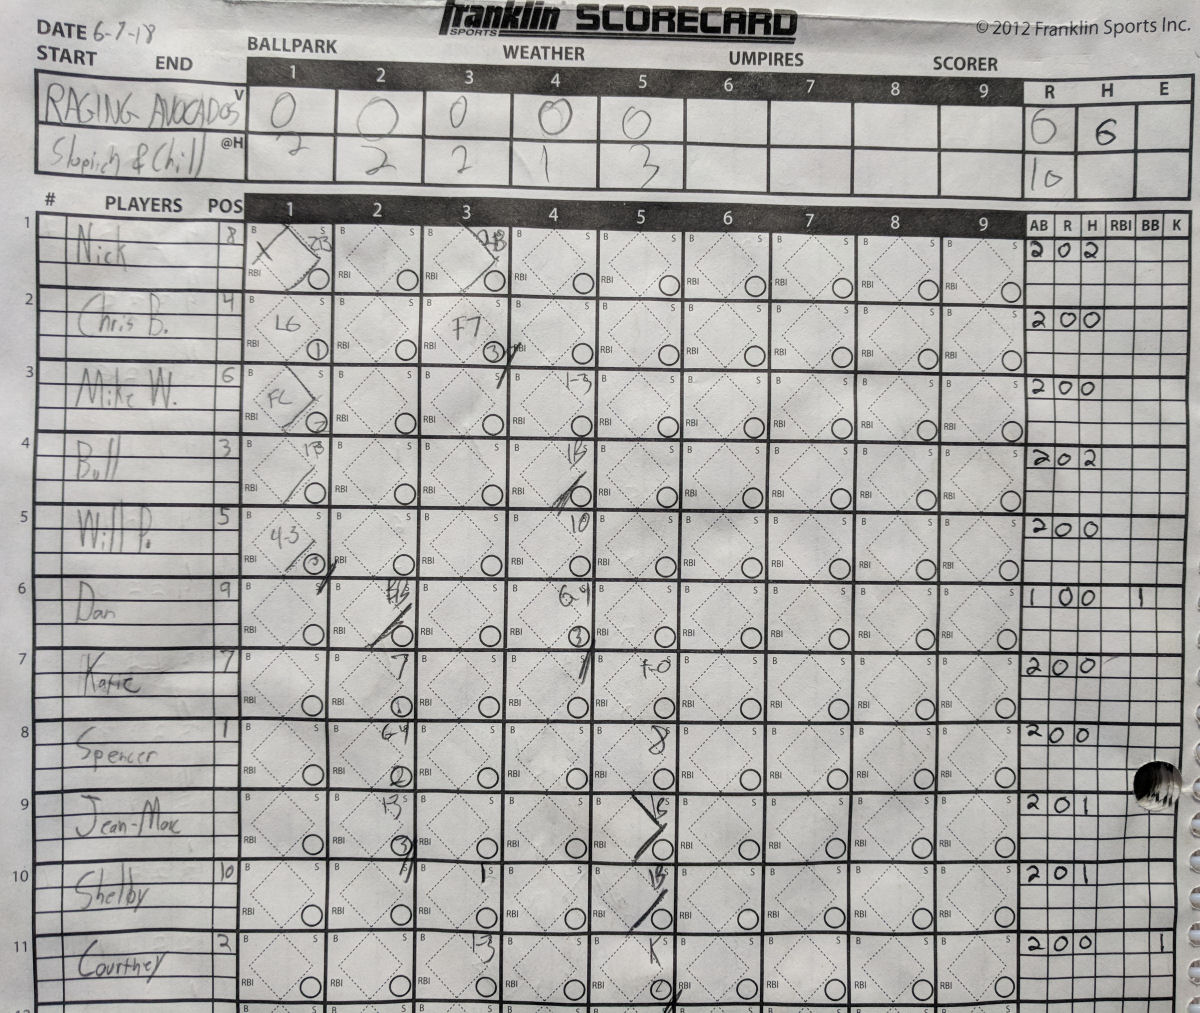 Franklin SPORTS SCORECARD
© 2012 Franklin Sports Inc.
DATE 6-7-18
START END BALLPARK WEATHER UMPIRES SCORER
1 2 3 4 5 6 7 8 9 R H E
RAGING AVOCADOS V 0 0 0 0 0 0 6
& Chill @H 2 2 2 1 3 10
# PLAYERS POS 1 2 3 4 5 6 7 8 9 AB R H RBI BB K
1 Nick 8 X 2B 2B 2 0 2
2 Chris B. 4 L6 1 F7 3 2 0 0
3 Mike W. 6 FC 2 1-3 2 0 0
4 Bull 3 1B 1B 2 0 2
5 Will P. 5 4-3 3 10 2 0 0
6 Dan 9 BB 6-4 3 1 0 0 1
7 Katie 7 7 1 2 0 0
8 Spencer 1 6-4 2 8 2 0 0
9 Jean-Marc 1-3 3 1B 2 0 1
10 Shelby 10 1 1B 2 0 1
11 Courtney 2 1-3 K 2 0 0 1
B S RBI